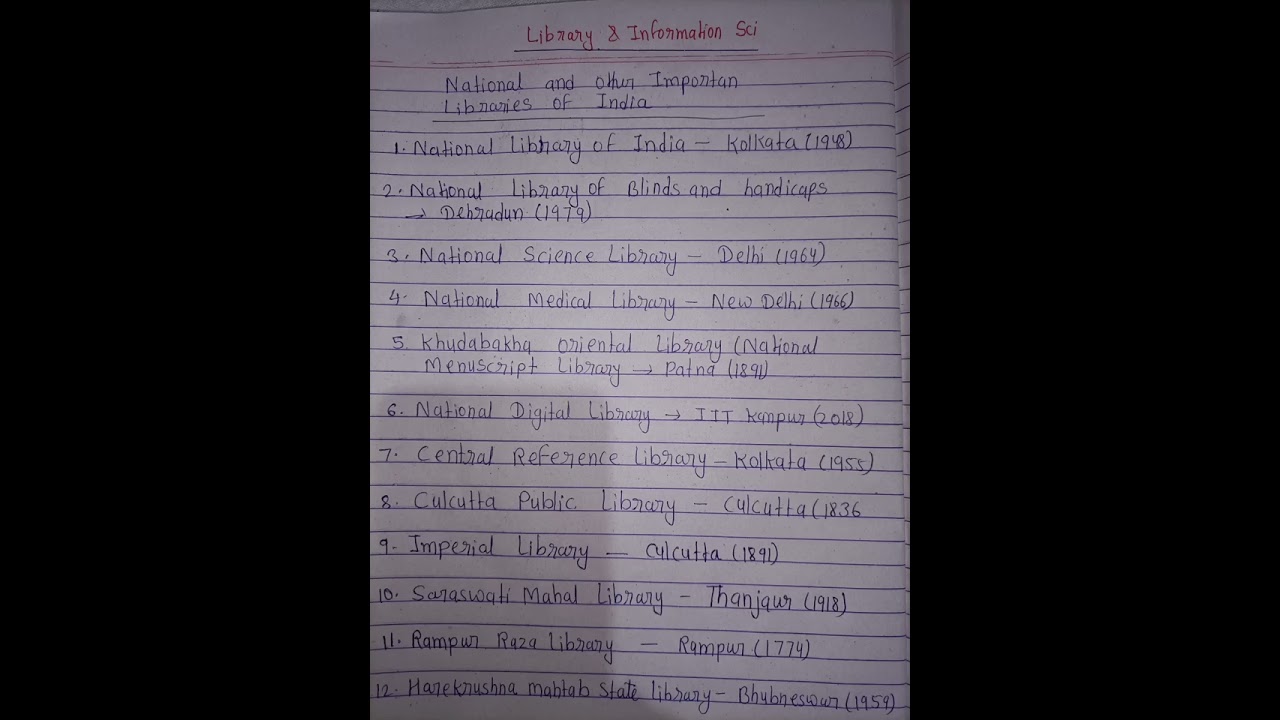 Library & Information Sci
National and other Importan
Libraries of India
1. National Library of India - Kolkata (1948)
2. National Library of Blinds and handicaps
→ Dehradun (1979)
3. National Science Library - Delhi (1964)
4. National Medical Library - New Delhi (1966)
5. Khudabakhq oriental library (National
Menuscript Library → Patna (1891)
6. National Digital Library → IIT Kanpur (2018)
7. Central Reference Library - Kolkata (1955)
8. Culcutta Public Library - Culcutta (1836
9. Imperial Library - Culcutta (1891)
10. Saraswati Mahal Library - Thanjaur (1918)
11. Rampur Raza Library - Rampur (1774)
12. Harekrushna mahtab State library - Bhubneswar (1959)